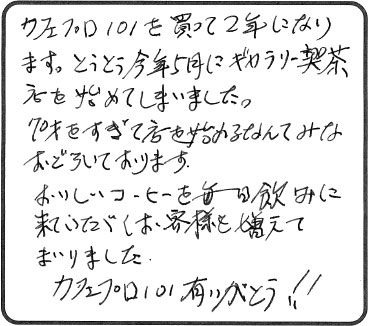 カフェプロ101を買って2年になり
ます。とうとう今年5月にギャラリー喫茶
店を始めてしまいました。
70才をすぎて店を始めるなんてみな
おどろいております。
おいしいコーヒーを毎日飲みに
来ていただくお客様も増えて
まいりました。
カフェプロ101有りがとう!!